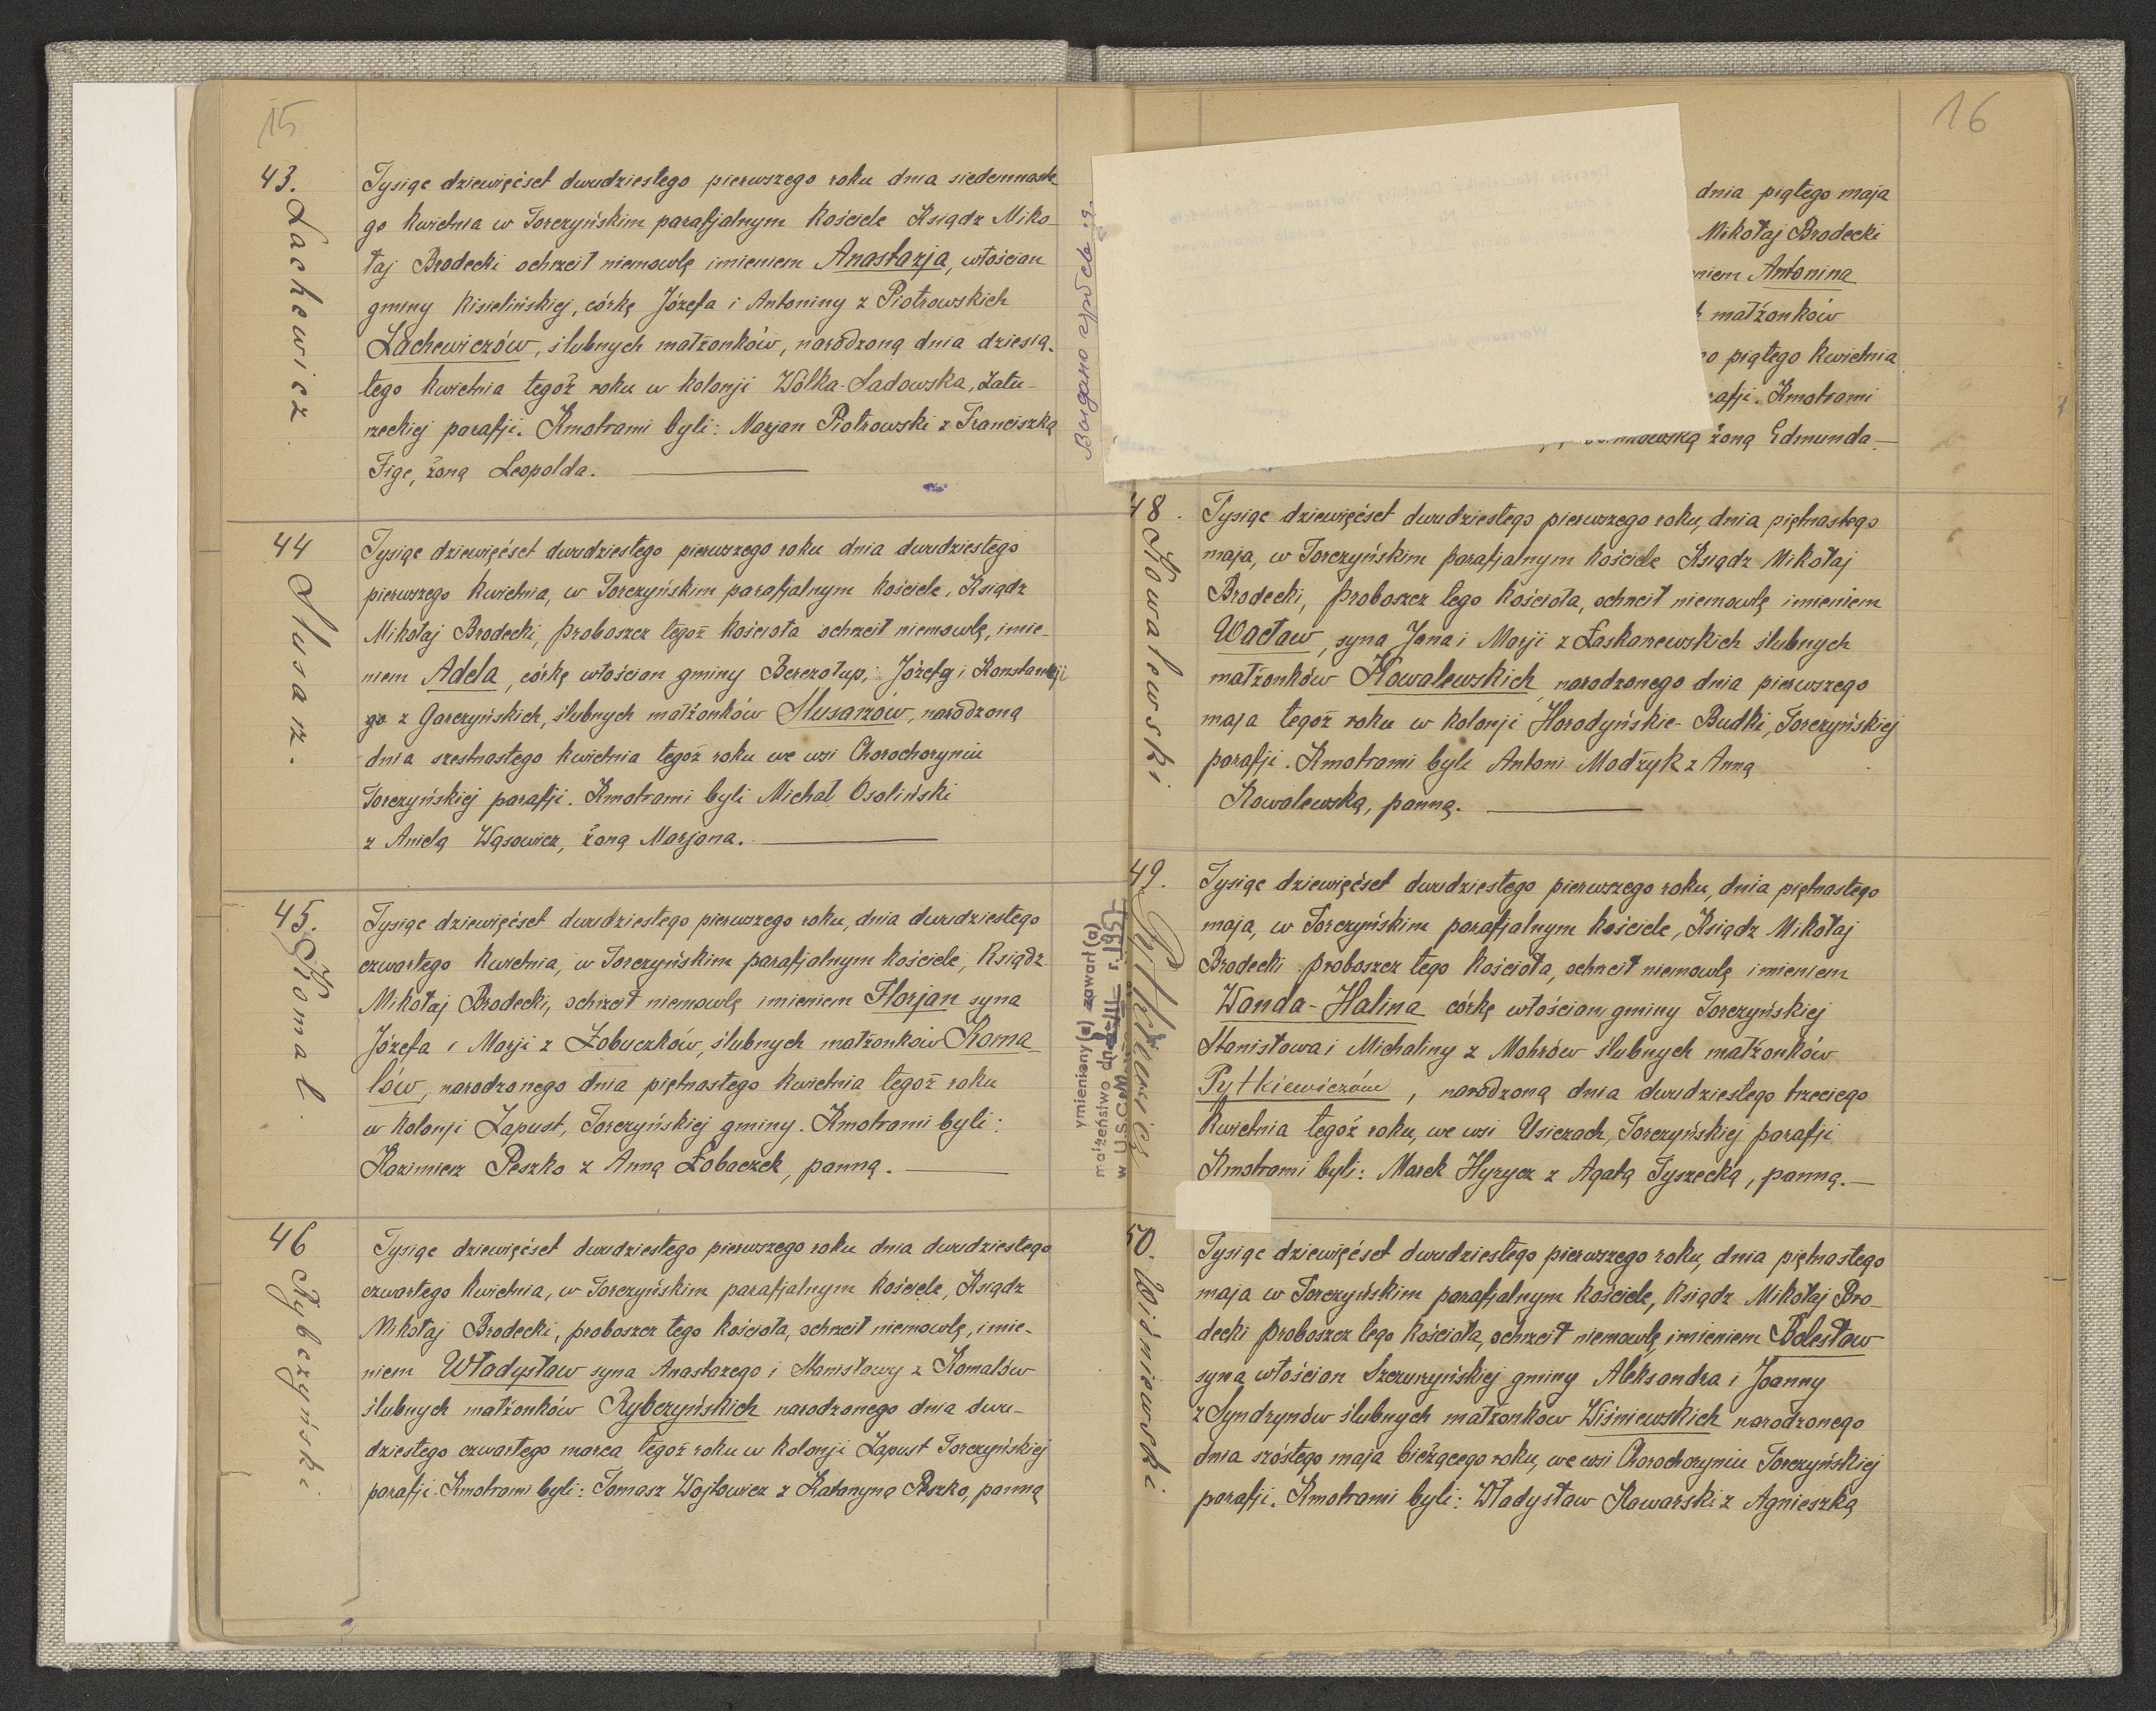 15
43.
Lachewicz
Tysiąc dziewięćset dwudziestego pierwszego roku dnia siedemnaste-
go kwietnia w Torczyńskim parafjalnym kościele Ksiądz Miko-
łaj Brodecki ochrzcił niemowlę imieniem Anastazja, włościan
gminy Kisielińskiej, córkę Józefa i Antoniny z Piotrowskich
Lachewiczów, ślubnych małżonków, narodzoną dnia dziesią-
tego kwietnia tegoż roku w kolonji Wólka-Sadowska, Zatu-
rzeckiej parafji. Kmotrami byli: Marjan Piotrowski z Franciszką
Fige, żoną Leopolda.
44
Slusarz.
Tysiąc dziewięćset dwudziestego pierwszego roku dnia dwudziestego
pierwszego kwietnia, w Torczyńskim parafjalnym kościele, Ksiądz
Mikołaj Brodecki, proboszcz tegoż kościoła ochrzcił niemowlę, imie-
niem Adela, córkę włościan gminy Berezołup; Józefa i Konstancji
go z Garczyńskich, ślubnych małżonków Slusarzów, narodzoną
dnia szestnastego kwietnia tegoż roku we wsi Chorochoryniu
Torczyńskiej parafji. Kmotrami byli Michał Osoliński
z Anielą Wąsowicz, żoną Marjana.
45.
Komal.
Tysiąc dziewięćset dwudziestego pierwszego roku, dnia dwudziestego
czwartego kwietnia, w Torczyńskim parafjalnym kościele, Ksiądz
Mikołaj Brodecki, ochrzcił niemowlę imieniem Florjan syna
Józefa i Marji z Łobuczków, ślubnych małżonków Koma-
lów, narodzonego dnia piętnastego kwietnia tegoż roku
w kolonji Zapust, Torczyńskiej gminy. Kmotrami byli:
Kazimierz Peszko z Anną Łobaczek, panną.
46
Rybczyński.
Tysiąc dziewięćset dwudziestego pierwszego roku dnia dwudziestego
czwartego kwietnia, w Torczyńskim parafjalnym kościele, Ksiądz
Mikołaj Brodecki, proboszcz tego kościoła, ochrzcił niemowlę, imie-
niem Władysław syna Anastazego i Stanisławy z Komalów
ślubnych małżonków Rybczyńskich narodzonego dnia dwu-
dziestego czwartego marca tegoż roku w kolonji Zapust Torczyńskiej
parafji. Kmotrami byli: Tomasz Wojtowicz z Katarzyną Peszko, panną
16
dnia piątego maja
Mikołaj Brodecki
niem Antonina
małżonków
go piątego kwietnia
rafji. Kmotrami
żoną Edmunda
48.
Kowalewski
Tysiąc dziewięćset dwudziestego pierwszego roku, dnia piętnastego
maja, w Torczyńskim parafjalnym kościele Ksiądz Mikołaj
Brodecki, proboszcz tego kościoła, ochrzcił niemowlę imieniem
Wacław, syna Jana i Marji z Łaskarzewskich ślubnych
małżonków Kowalewskich narodzonego dnia pierwszego
maja tegoż roku w kolonji Horodyńskie-Budki, Torczyńskiej
parafji. Kmotrami byli Antoni Modżyk z Anną
Kowalewską, panną.
ymieniony(a) zawarł(a)
małżeństwo dn. r. 1957
w U.S.C.
49.
Pytkiewicz
Tysiąc dziewięćset dwudziestego pierwszego roku, dnia piętnastego
maja, w Torczyńskim parafjalnym kościele, Ksiądz Mikołaj
Brodecki proboszcz tego kościoła, ochrzcił niemowlę imieniem
Wanda-Halina córkę włościan gminy Torczyńskiej
Stanisława i Michaliny z Mohrów ślubnych małżonków
Pytkiewiczów, narodzoną dnia dwudziestego trzeciego
kwietnia tegoż roku, we wsi Usiczach, Torczyńskiej parafji
Kmotrami byli: Marek Hyrycz z Agatą Tyszecką, panną.
50.
Wiśniewski.
Tysiąc dziewięćset dwudziestego pierwszego roku, dnia piętnastego
maja w Torczyńskim parafjalnym kościele, Ksiądz Mikołaj Bro-
decki proboszcz tego kościoła, ochrzcił niemowlę, imieniem Bolesław
syna włościan Szczurzyńskiej gminy Aleksandra i Joanny
z Syndrynów ślubnych małżonków Wiśniewskich narodzonego
dnia szóstego maja bieżącego roku, we wsi Chorochoryniu Torczyńskiej
parafji. Kmotrami byli: Władysław Kawarski z Agnieszką